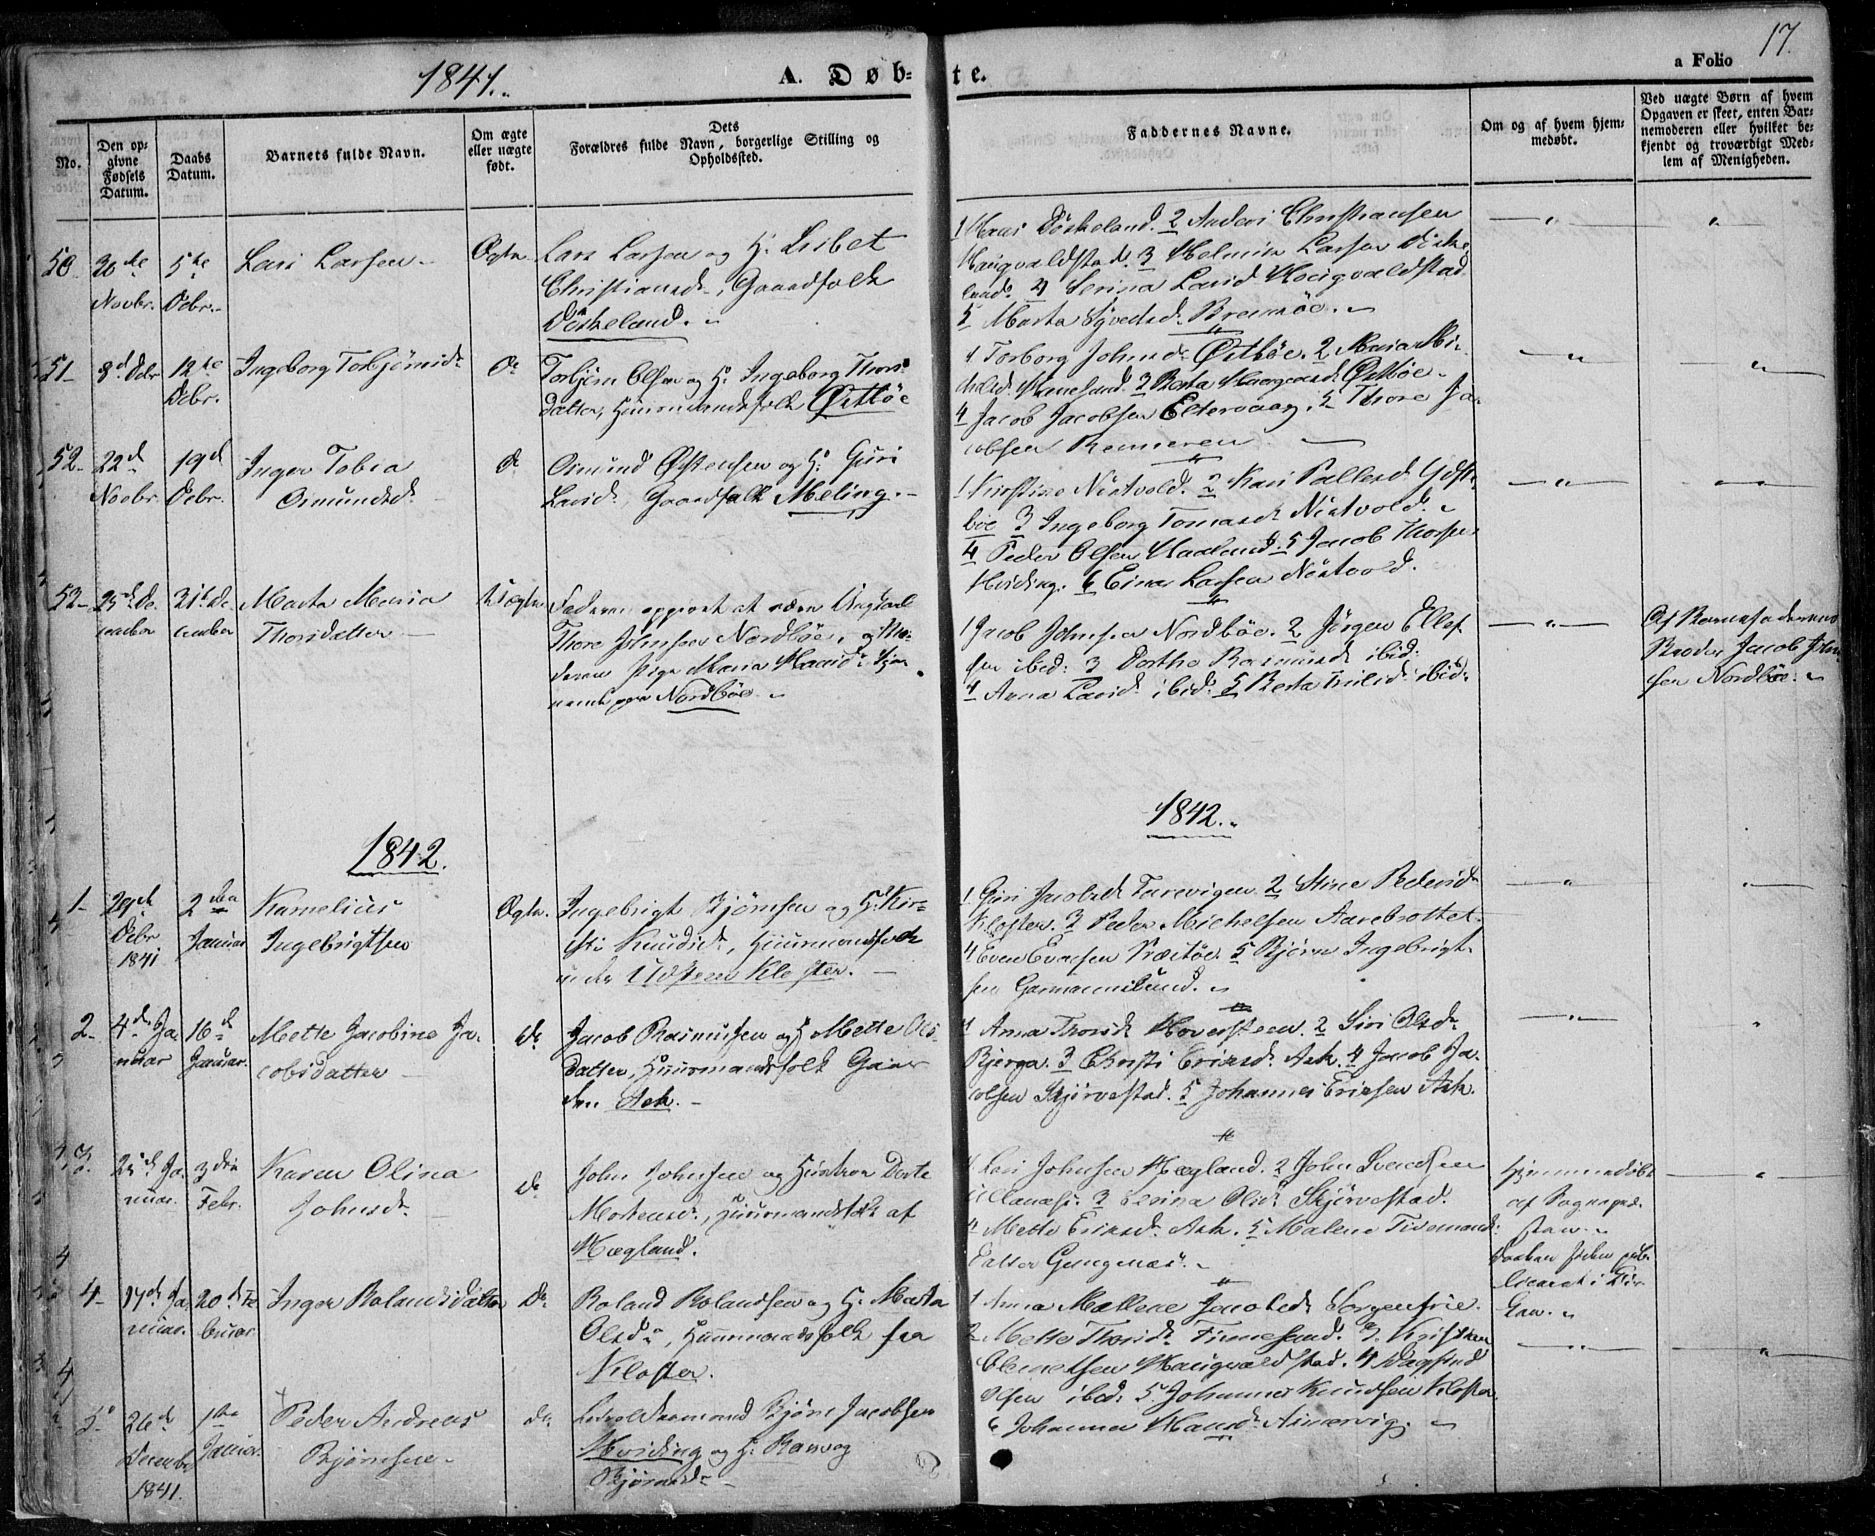 1841.
A. Døb-
te.
a Folio
17.
No.
Den op-
givne
Fødsels
Datum.
Daabs
Datum.
Barnets fulde Navn.
Om ægte
eller uægte
født.
Dets
Forældres fulde Navn, borgerlige Stilling og
Opholdssted.
Faddernes Navne.
Om og af hvem hjem-
medøbt.
Ved uægte Børn af hvem
Opgaven er skeet, enten Bar-
nemoderen eller hvilket be-
kjendt og troværdigt Med-
lem af Menigheden.
50
30te
Novbr.
5te
Debr.
Lars Larsen
Ægte
Lars Larsen og H. Lisbet
Christiansd., Gaardfolk
Diskeland.
1 Hans Diskeland. 2 Anders Christiansen
Haugvaldstad. 3 Helmik Larsen Diske
land. 4 Serina Larsd Haugvaldstad
5 Marta Syvertsd. Bremsöe.
51
8d Debr
12te
Debr.
Ingeborg Torbjörnsd.
do
Torbjörn Olsen og H. Ingeborg Thors
datter, Huusmandsfolk Østböe
1. Torborg Johnsd Østböe. 2 Maria
3 Berta Østböe
4 Jacob Jacobsen Eltervaag. 5 Thore Ja
cobsen Renneren
52
22d
Novbr.
19d
Debr.
Inger Tobia
Osmundsd.
do
Osmund Østensen og H. Guri
Larsd. Gaardfolk Meling.
1 Kirstine Nistvold. 2 Kari Pallesd Ydst
böe 3 Ingeborg Tomasd. Nistvold.
4 Peder Olsen Haaland. 5 Jacob
Hviding. 6 Einar Larsen Nistvold.
53
25de De
cember
31te De
cember
Marta Maria
Thorsdatter
Uægte
Faderen opgivet at være Ungkarl
Thore Johnsen Nordböe, og Mo
deren Pige Maria
Nordböe.
1 Jacob Johnsen Nordböe. 2 Jörgen Ellef
sen ibid: 3 Dorthe Rasmusd ibid:
4 Anna Larsd ibid: 5 Berta ibid:
Af Barnefaderens
Broder Jacob John
sen Nordböe.
1842.
1842.
1
29de
Debr
1841
2den
Januar
Kornelius
Ingebrigtsen
Ægte.
Ingebrigt Bjørnsen og H. Kir
sti Knudsd., Huusmandsfolk
under Udstens Kloster.
1 Guri Jacobsd Tarevigen 2 Stine Pedersd
Kloster. 3 Peder Michelsen Aarebrottet
4 Even Evensen 5 Bjørn Ingebrigt
sen Garmannslund.
2
4de Ja
nuar
16d
Januar.
Mette Jacobine Ja
cobsdatter
do
Jacob Rasmussen og H Mette Ols
datter, Huusmandsfolk Gaar
den Ask.
1 Anna Thorsd Hoversteen. 2 Siri Olsd.
Bjerga. 3 Christi Eriksd. Ask. 4 Jacob Ja
cobsen Skjørvestad. 5 Johannes Eriksen Ask.
3.
Ja
nuar.
3die
Febr.
Karen Olina
Johnsd.
do
John Johnsen og Hustroe Dorte
Mortensd., Huusmandsfolk af
Hægland.
1 Johnsen Hægland. 2 John Svendsen
3 Serina Olsd Skjørvestad.
4 Mette Eriksd Ask. 5 Malene Tidemands
datter Gungenæs.
Hjemmedøbt
af Sognepræ
sten.
Daaben siden pub
liceret i Kir
ken.
4
17de Ja
nuar.
20de Fe
bruar
Inger Rolandsdatter
Do.
Roland Rolandsen og H. Marta
Olsd., Huusmandsfolk fra
Kloster.
1 Anna Mallene Jacobsd Sorgenfrie.
2 Mette Thorsd. Finnesand. 3. Kristian
Clemetsen Haugvaldstad. 4
Olsen ibid. 5 Johannes Knudsen Kloster
6 Johanna Hansd.
5
26de
December
1841.
1ste
Januar.
Peder Andreas
Bjørnsen
do
Bjørn Jacobsen
Hviding og H. Ranvog
Bjørnsd.